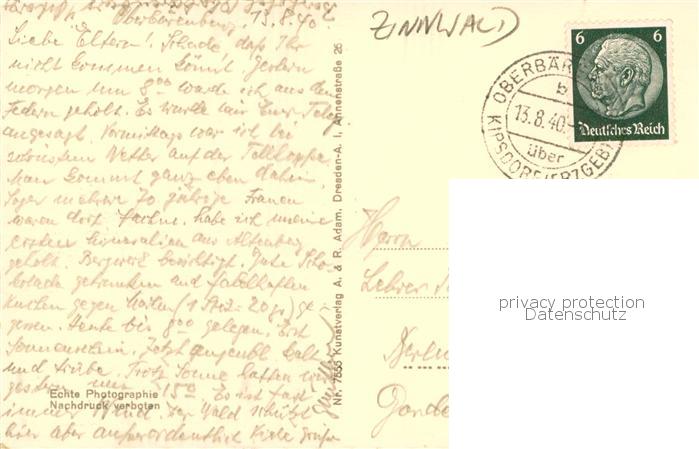 Oberbärenburg, 13.8.40.
Liebe Eltern! Schade daß Ihr
nicht kommen könnt. Gestern
morgen um 8⁰⁰ wurde ich aus den
Federn geholt. Es wurde mir Euer Teleg
angesagt. Vormittags war ich bei
schönstem Wetter auf der Tellkoppe.
Man kommt ganz eben dahin.
Sogar mehrere 70 jährige Frauen
waren dort. habe ich meine
ersten Mineralien aus Altenberg
geholt. Bergwerk besichtigt. Gute Scho-
kolade getrunken und fabelhaften
Kuchen gegen Marken (1 Stck = 20 gr.) ge-
gessen. Heute bis 8⁰⁰ gelegen. Erst
Sonnenschein. Jetzt kalt
und trübe. Trotz Sonne hatten wir
gestern nur 15°. Es ist fast
immer Wind. Der Wald schützt
hier aber außerordentlich. Viele Grüße
Echte Photographie
Nachdruck verboten
Nr. 7655 Kunstverlag A. & R. Adam, Dresden-A. I, Ahnenstraße 26
ZINNWALD
6 6
Deutsches Reich
OBERBÄR
b
13.8.40.
über
KIPSDORF (ERZGEB)
Herrn
Lehrer
Berlin
privacy protection
Datenschutz